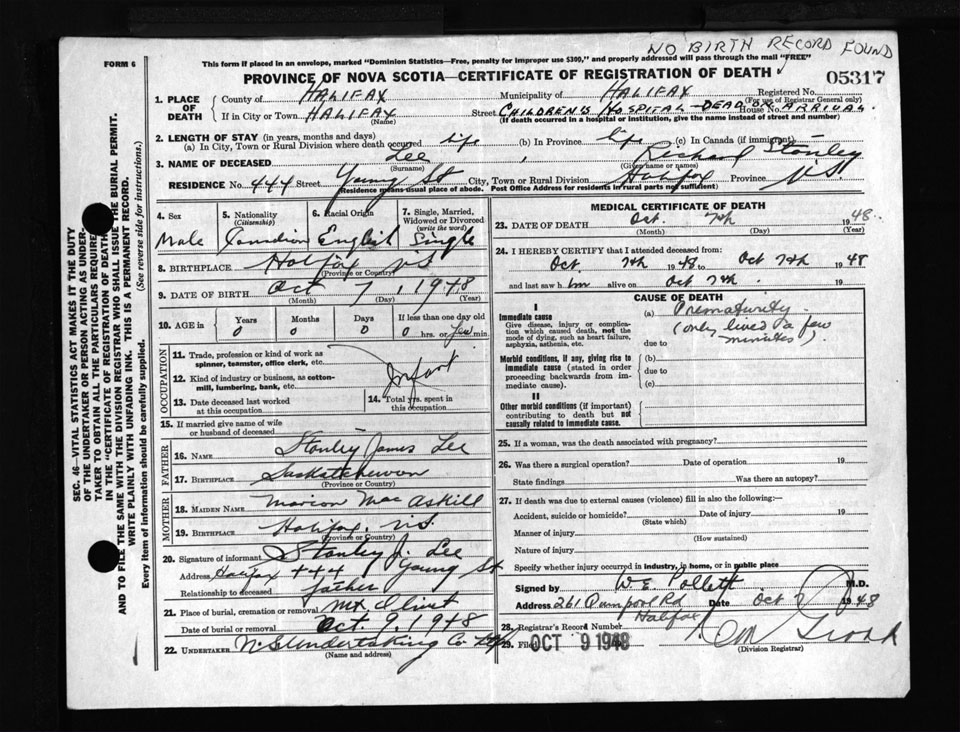 NO BIRTH RECORD FOUND
FORM 6
This form if placed in an envelope, marked "Dominion Statistics—Free, penalty for improper use $300," and properly addressed will pass through the mail "FREE"
PROVINCE OF NOVA SCOTIA—CERTIFICATE OF REGISTRATION OF DEATH
05317
1. PLACE OF DEATH
County of HALIFAX Municipality of HALIFAX Registered No.
(For use of Registrar General only)
If in City or Town HALIFAX Street CHILDREN'S HOSPITAL — DEAD ON ARRIVAL House No.
(Name) (If death occurred in a hospital or institution, give the name instead of street and number)
2. LENGTH OF STAY (in years, months and days)
(a) In City, Town or Rural Division where death occurred life (b) In Province life (c) In Canada (if immigrant) —
3. NAME OF DECEASED Lee , Richard Stanley
(Surname) (Given name or names)
RESIDENCE No. 444 Street Young St City, Town or Rural Division Halifax Province N.S.
Residence means usual place of abode. Post Office Address for residents in rural parts not sufficient)
4. Sex Male
5. Nationality (Citizenship) Canadian
6. Racial Origin English
7. Single, Married, Widowed or Divorced (write the word) Single
8. BIRTHPLACE Halifax NS
(Province or Country)
9. DATE OF BIRTH Oct 7, 1948
(Month) (Day) (Year)
10. AGE in Years 0 Months 0 Days 0 If less than one day old 0 hrs. or few min.
OCCUPATION
11. Trade, profession or kind of work as spinner, teamster, office clerk, etc.
12. Kind of industry or business, as cotton-mill, lumbering, bank, etc.
Infant
13. Date deceased last worked at this occupation
14. Total yrs. spent in this occupation
15. If married give name of wife or husband of deceased —
FATHER
16. NAME Stanley James Lee
17. BIRTHPLACE Saskatchewan
(Province or Country)
MOTHER
18. MAIDEN NAME Marion MacAskill
19. BIRTHPLACE Halifax, NS.
(Province or Country)
20. Signature of informant Stanley J. Lee
Address Halifax 444 Young St
Relationship to deceased father
21. Place of burial, cremation or removal Mt Olivet
Date of burial or removal Oct 9, 1948
22. UNDERTAKER N.S Undertaking Co Ltd
(Name and address)
MEDICAL CERTIFICATE OF DEATH
23. DATE OF DEATH Oct. 7th 1948
(Month) (Day) (Year)
24. I HEREBY CERTIFY that I attended deceased from:
Oct. 7th 1948 to Oct 7th 1948
and last saw him alive on Oct 7th. 19
CAUSE OF DEATH
I
Immediate cause
Give disease, injury or complication which caused death, not the mode of dying, such as heart failure, asphyxia, asthenia, etc.
(a) Prematurity
(only lived a few minutes).
due to
Morbid conditions, if any, giving rise to immediate cause (stated in order proceeding backwards from immediate cause).
(b)
due to
(c)
II
Other morbid conditions (if important) contributing to death but not causally related to immediate cause.
25. If a woman, was the death associated with pregnancy?
26. Was there a surgical operation? Date of operation 19
State findings Was there an autopsy?
27. If death was due to external causes (violence) fill in also the following:—
Accident, suicide or homicide? Date of injury 19
(State which)
Manner of injury
(How sustained)
Nature of injury
Specify whether injury occurred in industry, in home, or in public place
Signed by W E Pollett M.D.
Address 261 Rd Date Oct 1948
Halifax
28. Registrar's Record Number
29. Filed OCT 9 1948
(Division Registrar)
SEC. 46—VITAL STATISTICS ACT MAKES IT THE DUTY
OF THE UNDERTAKER OR PERSON ACTING AS UNDERTAKER TO OBTAIN ALL THE PARTICULARS REQUIRED
IN THE "CERTIFICATE OF REGISTRATION OF DEATH" AND TO FILE THE SAME WITH THE DIVISION REGISTRAR WHO SHALL ISSUE THE BURIAL PERMIT.
WRITE PLAINLY WITH UNFADING INK. THIS IS A PERMANENT RECORD.
Every item of information should be carefully supplied. (See reverse side for instructions.)